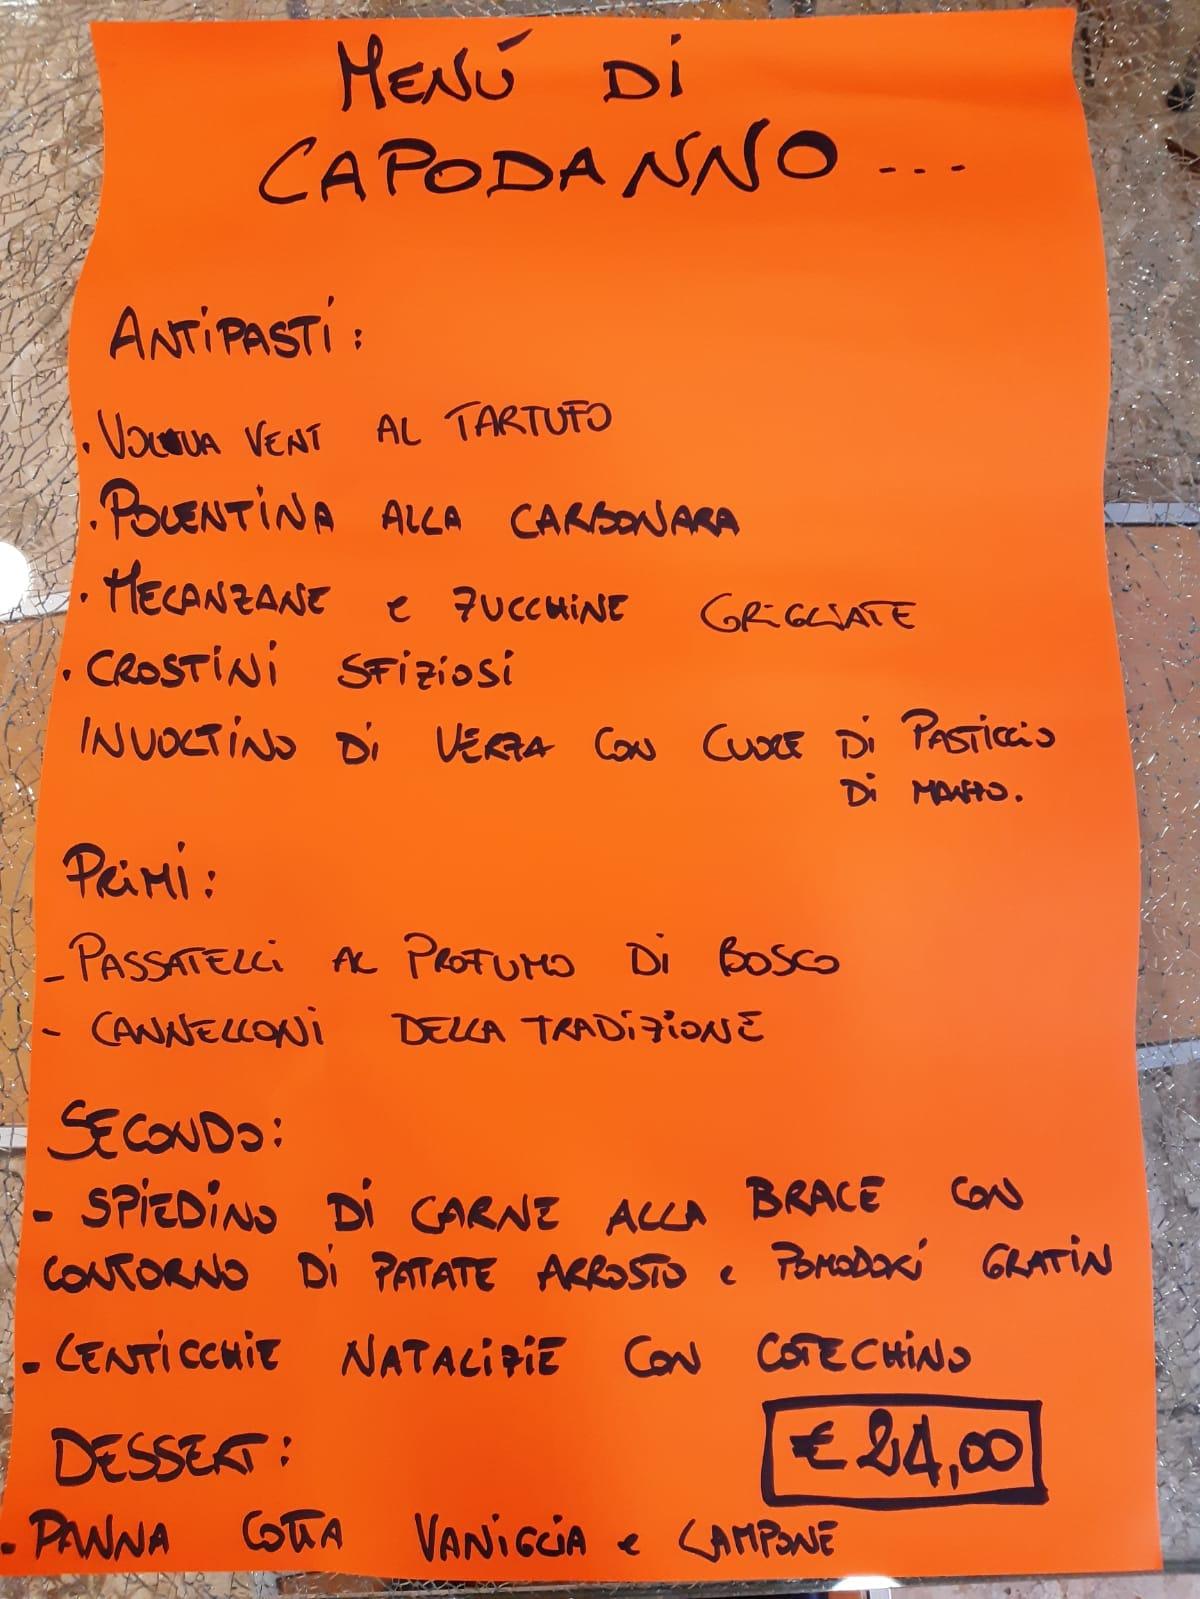 MENÚ Di
CAPODANNO ...
ANTiPASTi:
. VENT AL TARTUFO
. POLENTiNA ALLA CARBONARA
. MELANZANE e ZUCCHiNE GRiGLIATE
. CROSTiNi SFiZiOSi
INVOLTiNO Di VERZA CON CUORE Di PASTiCCiO
Di MANZO.
PRiMi:
- PASSATELLi AL PROFUMO Di BOSCO
- CANNELLONi DELLA TRADiZiONE
SECONDO:
- SPiEDiNO Di CARNE ALLA BRACE CON
CONTORNO Di PATATE ARROSTO e POMODORi GRATiN
- LENTiCCHiE NATALiZiE CON COTECHiNO
€ 24,00
DESSERT:
- PANNA COTTA VANiGLiA e LAMPONE